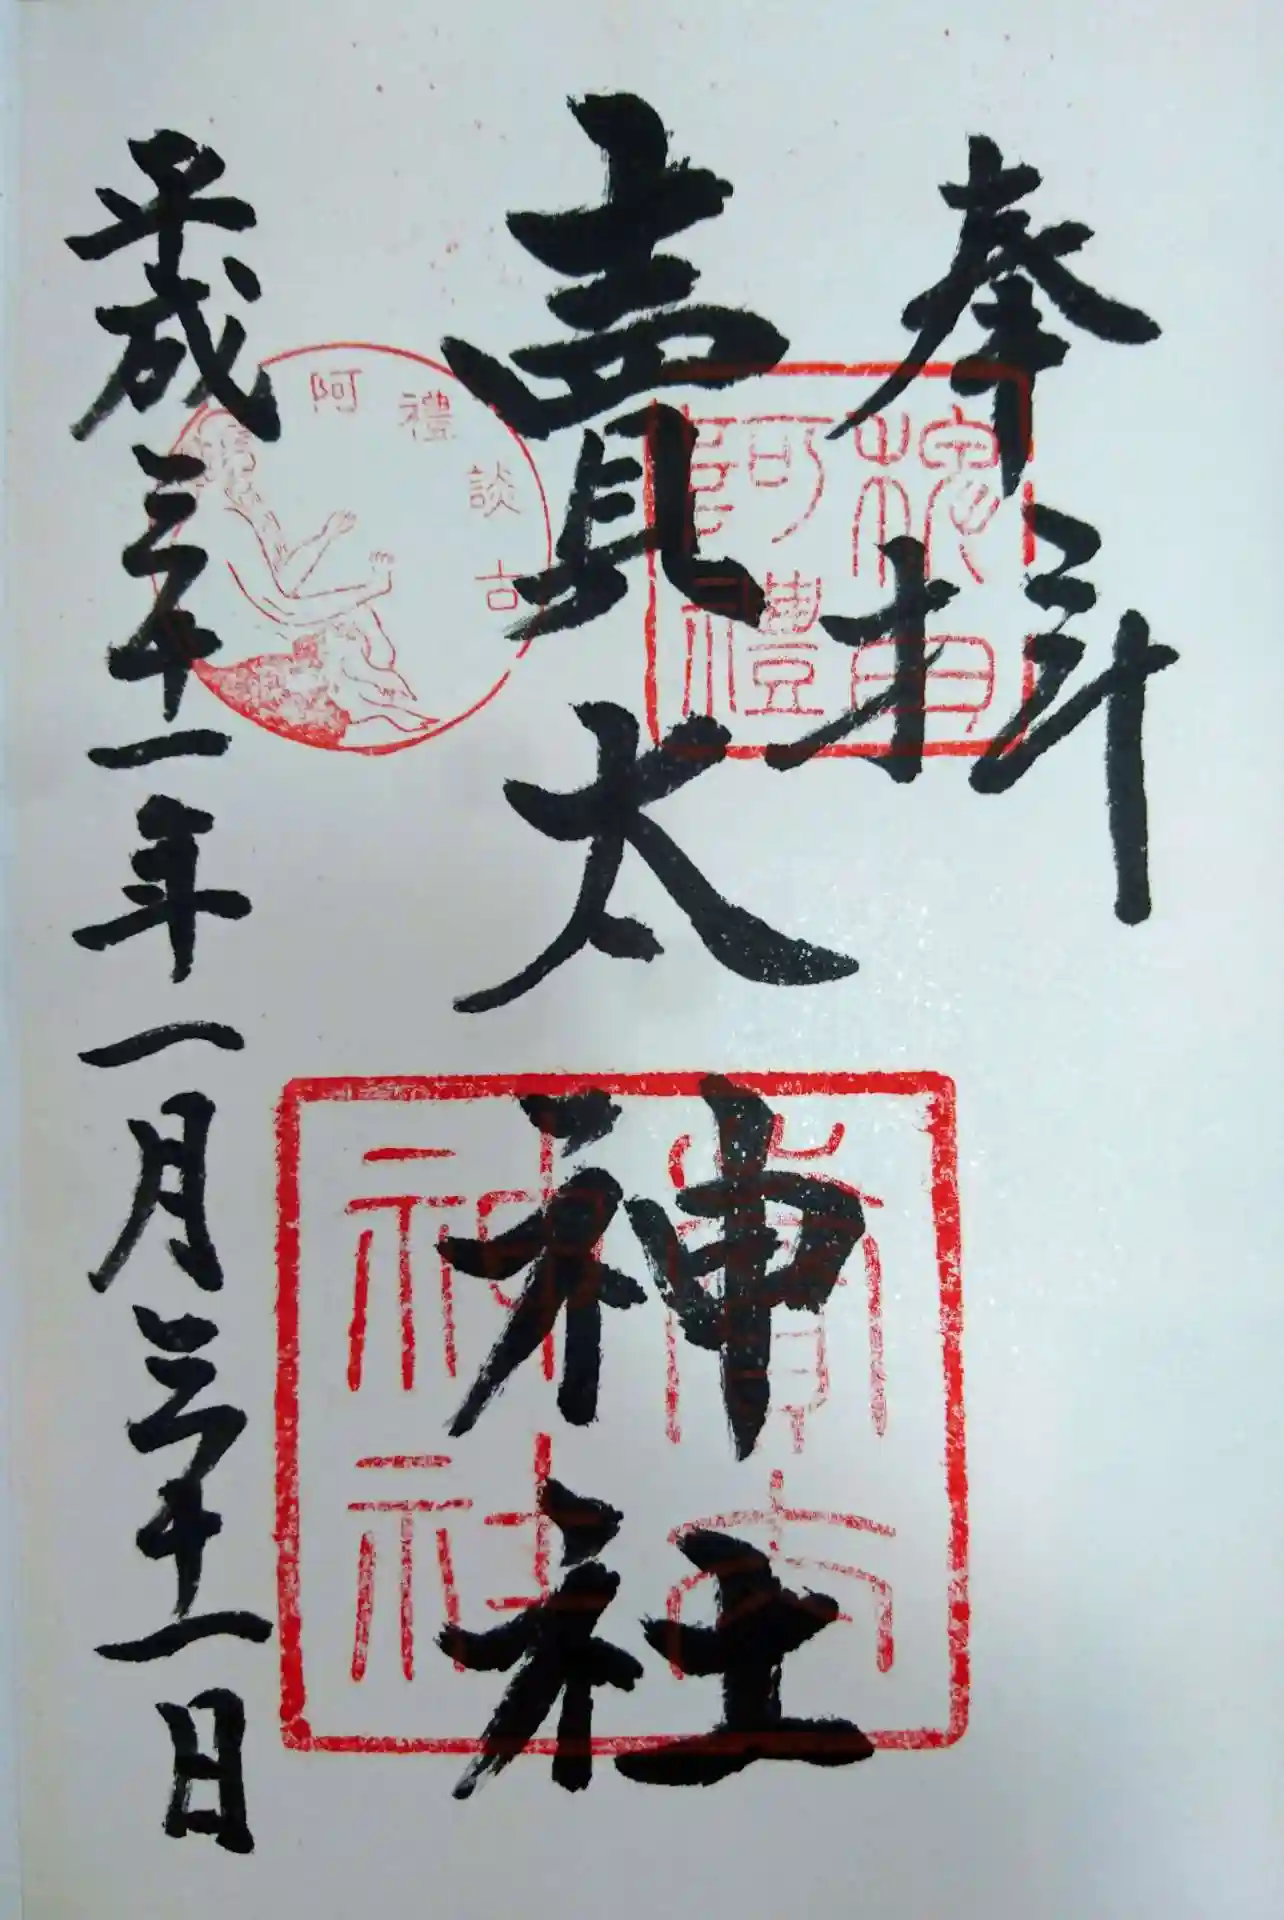 奉拝
稗田
阿禮
賣太神社
賣太
神社
阿禮談古
平成三十一年一月三十一日